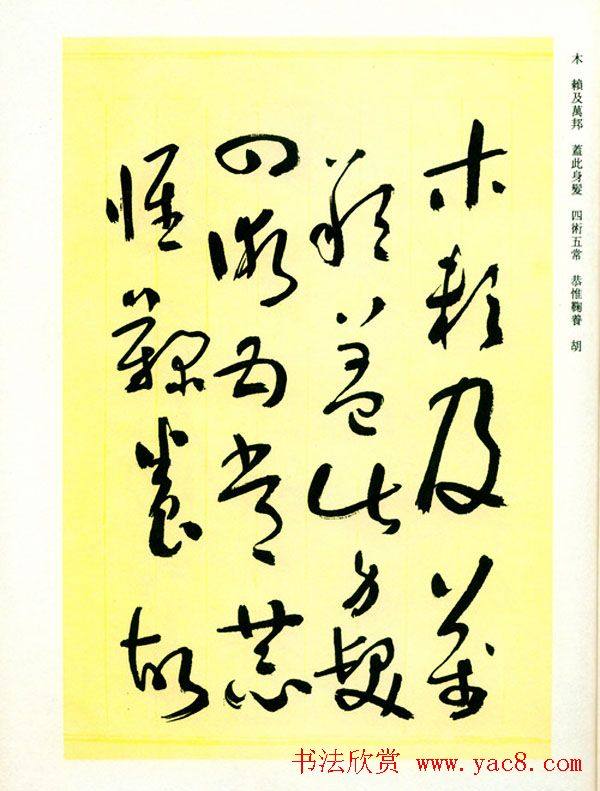 木　賴及萬邦　蓋此身髮　四術五常　恭惟鞠養　胡
木賴及萬
邦蓋此身髮
四術五常恭
惟鞠養胡
书法欣赏 www.yac8.com